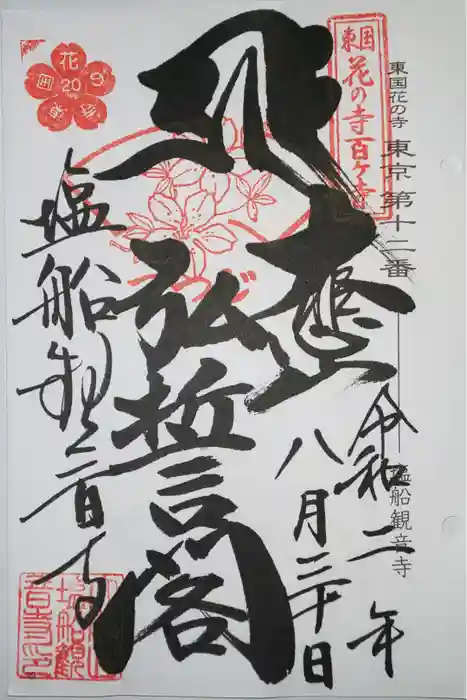 東国花の寺 東京第十二番 塩船観音寺
東国
花の寺百ヶ寺
令和二年
八月三十日
大悲山
弘誓閣
つつじ
塩船観音寺
花
20